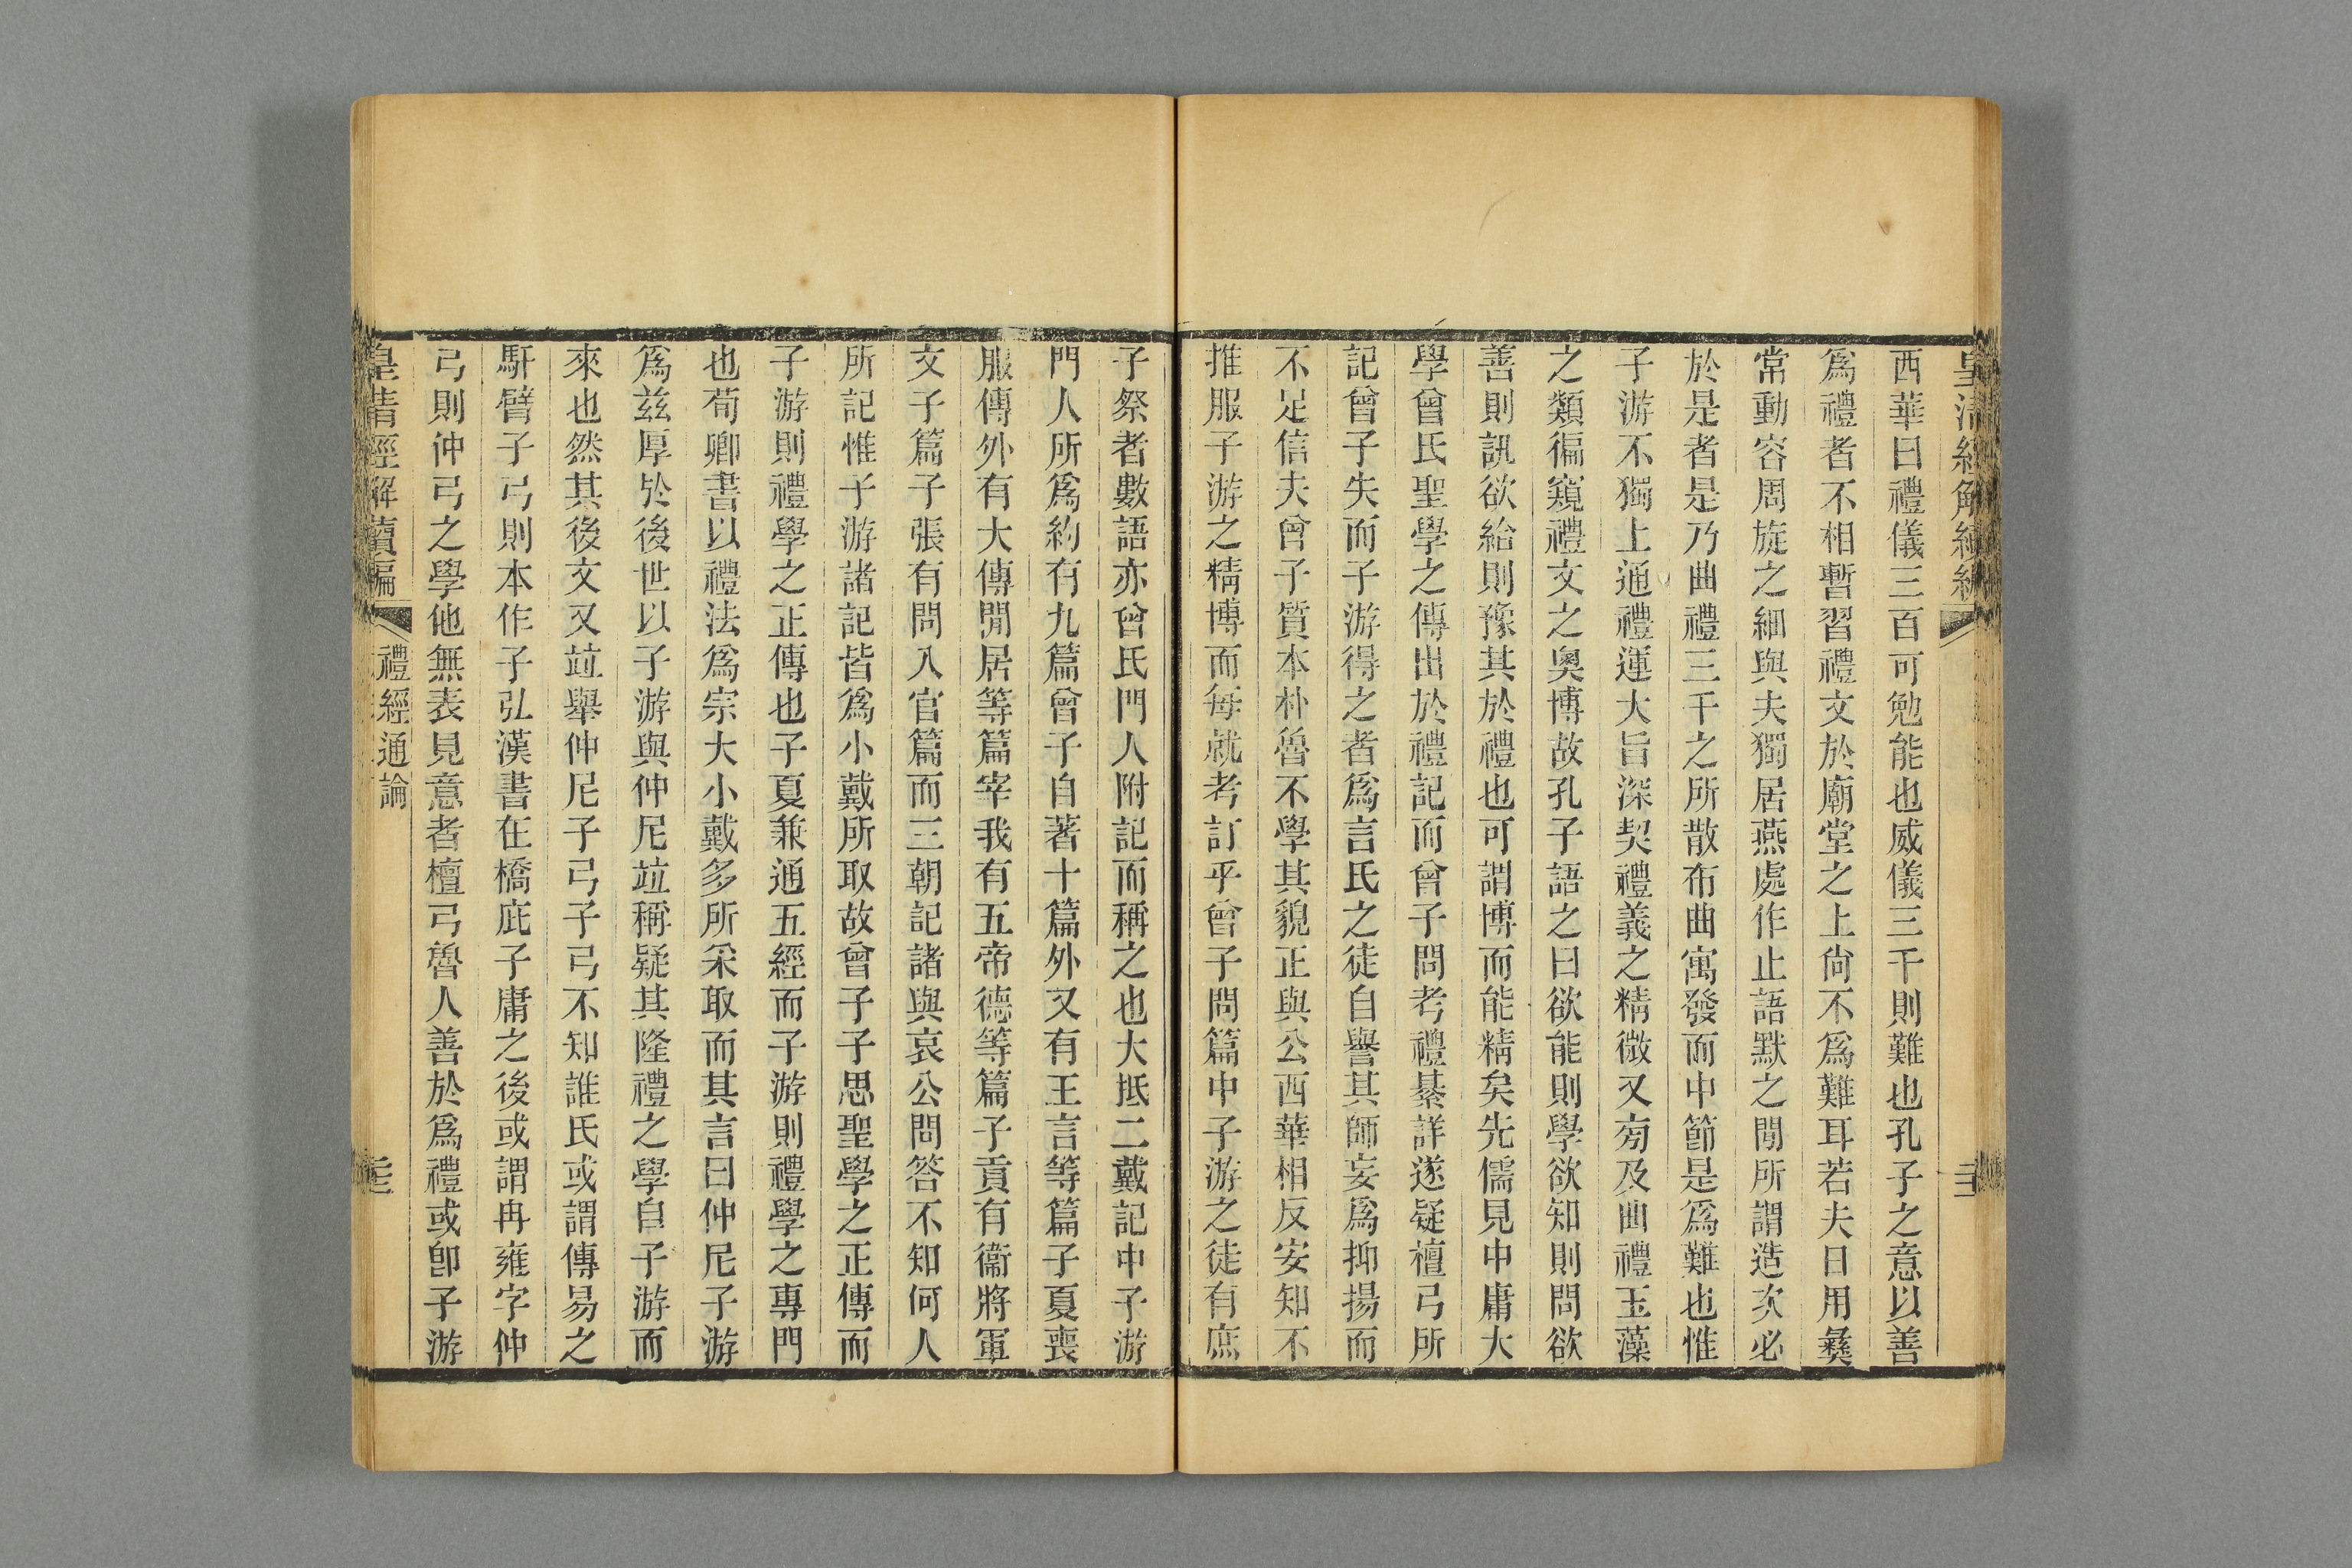 皇清經解續編
西華曰禮儀三百可勉能也威儀三千則難也孔子之意以善
爲禮者不相暫習禮文於廟堂之上尙不爲難耳若夫日用彝
常動容周旋之細與夫獨居燕處作止語默之閒所謂造次必
於是者是乃曲禮三千之所散布曲寓發而中節是爲難也惟
子游不獨上通禮運大旨深契禮義之精微又旁及曲禮玉藻
之類徧窺禮文之奧博故孔子語之曰欲能則學欲知則問欲
善則訊欲給則豫其於禮也可謂博而能精矣先儒見中庸大
學曾氏聖學之傳出於禮記而曾子問考禮綦詳遂疑檀弓所
記曾子失而子游得之者爲言氏之徒自譽其師妄爲抑揚而
不足信夫曾子質本朴魯不學其貌正與公西華相反安知不
推服子游之精博而每就考訂乎曾子問篇中子游之徒有庶
子祭者數語亦曾氏門人附記而稱之也大抵二戴記中子游
門人所爲約有九篇曾子自著十篇外又有王言等篇子夏喪
服傳外有大傳閒居等篇宰我有五帝德等篇子貢有衞將軍
文子篇子張有問入官篇而三朝記諸與哀公問答不知何人
所記惟子游諸記皆爲小戴所取故曾子子思聖學之正傳而
子游則禮學之正傳也子夏兼通五經而子游則禮學之專門
也荀卿書以禮法爲宗大小戴多所采取而其言曰仲尼子游
爲兹厚於後世以子游與仲尼竝稱疑其隆禮之學自子游而
來也然其後文又竝舉仲尼子弓子弓不知誰氏或謂傳易之
馯臂子弓則本作子弘漢書在橋庇子庸之後或謂冉雍字仲
弓則仲弓之學他無表見意者檀弓魯人善於爲禮或卽子游
皇清經解續編
禮經通論